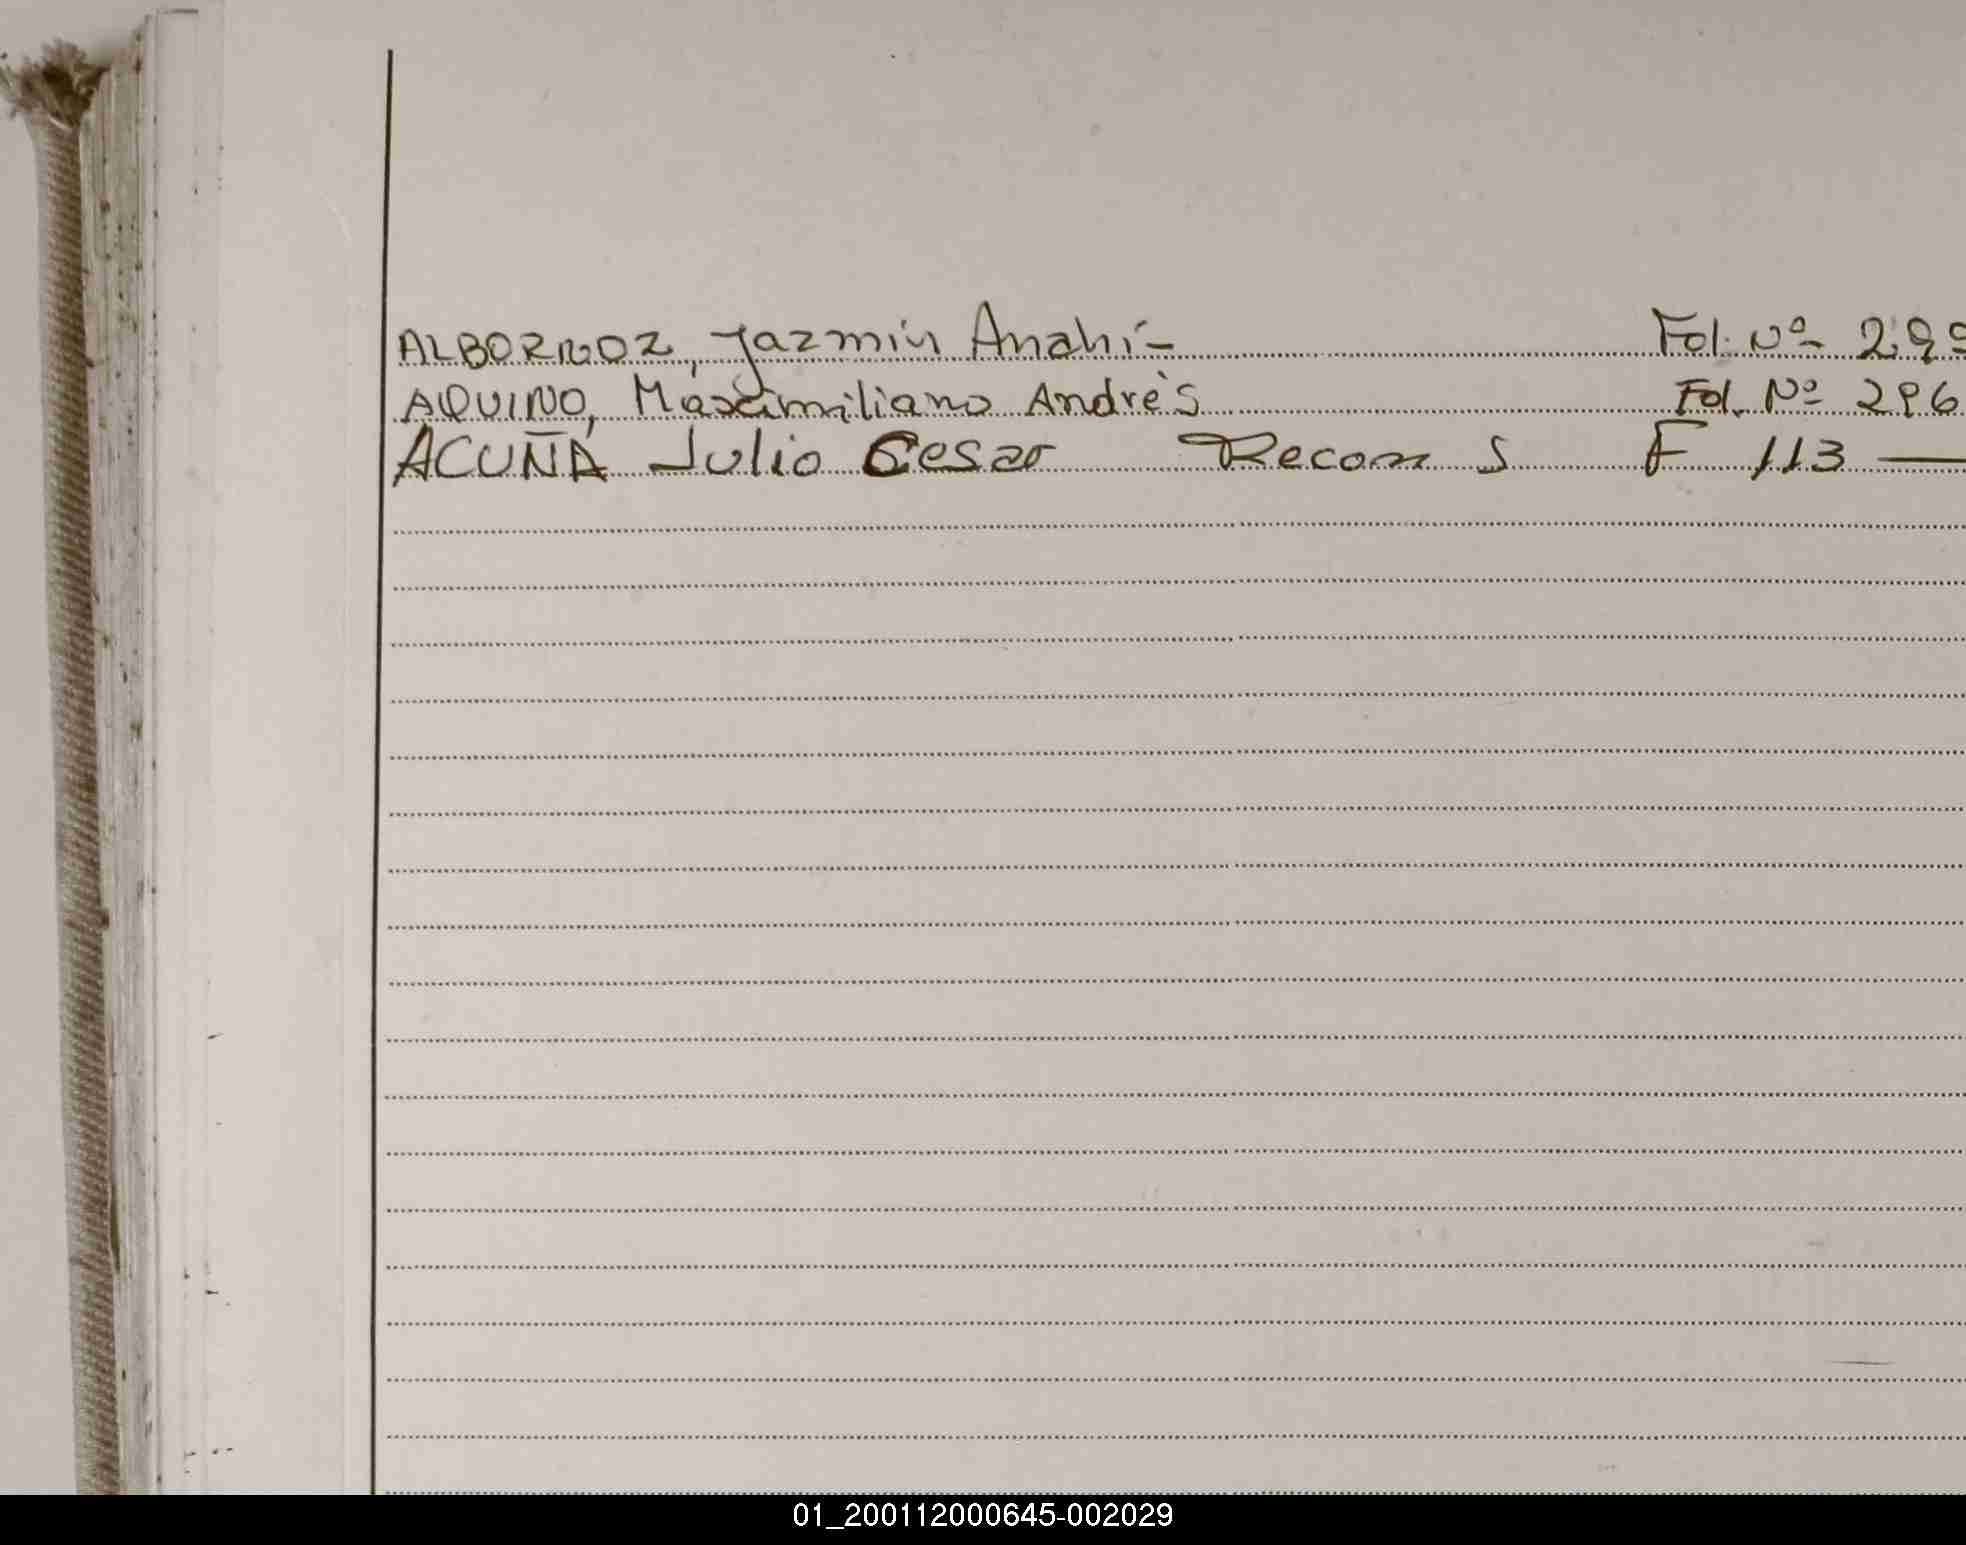 ALBORNOZ, Jazmín Anahí- Fol. Nº 299
AQUINO, Máximiliano Andrés Fol. Nº 296
ACUÑA Julio Cesar Recon S F 113 —
01_200112000645-002029